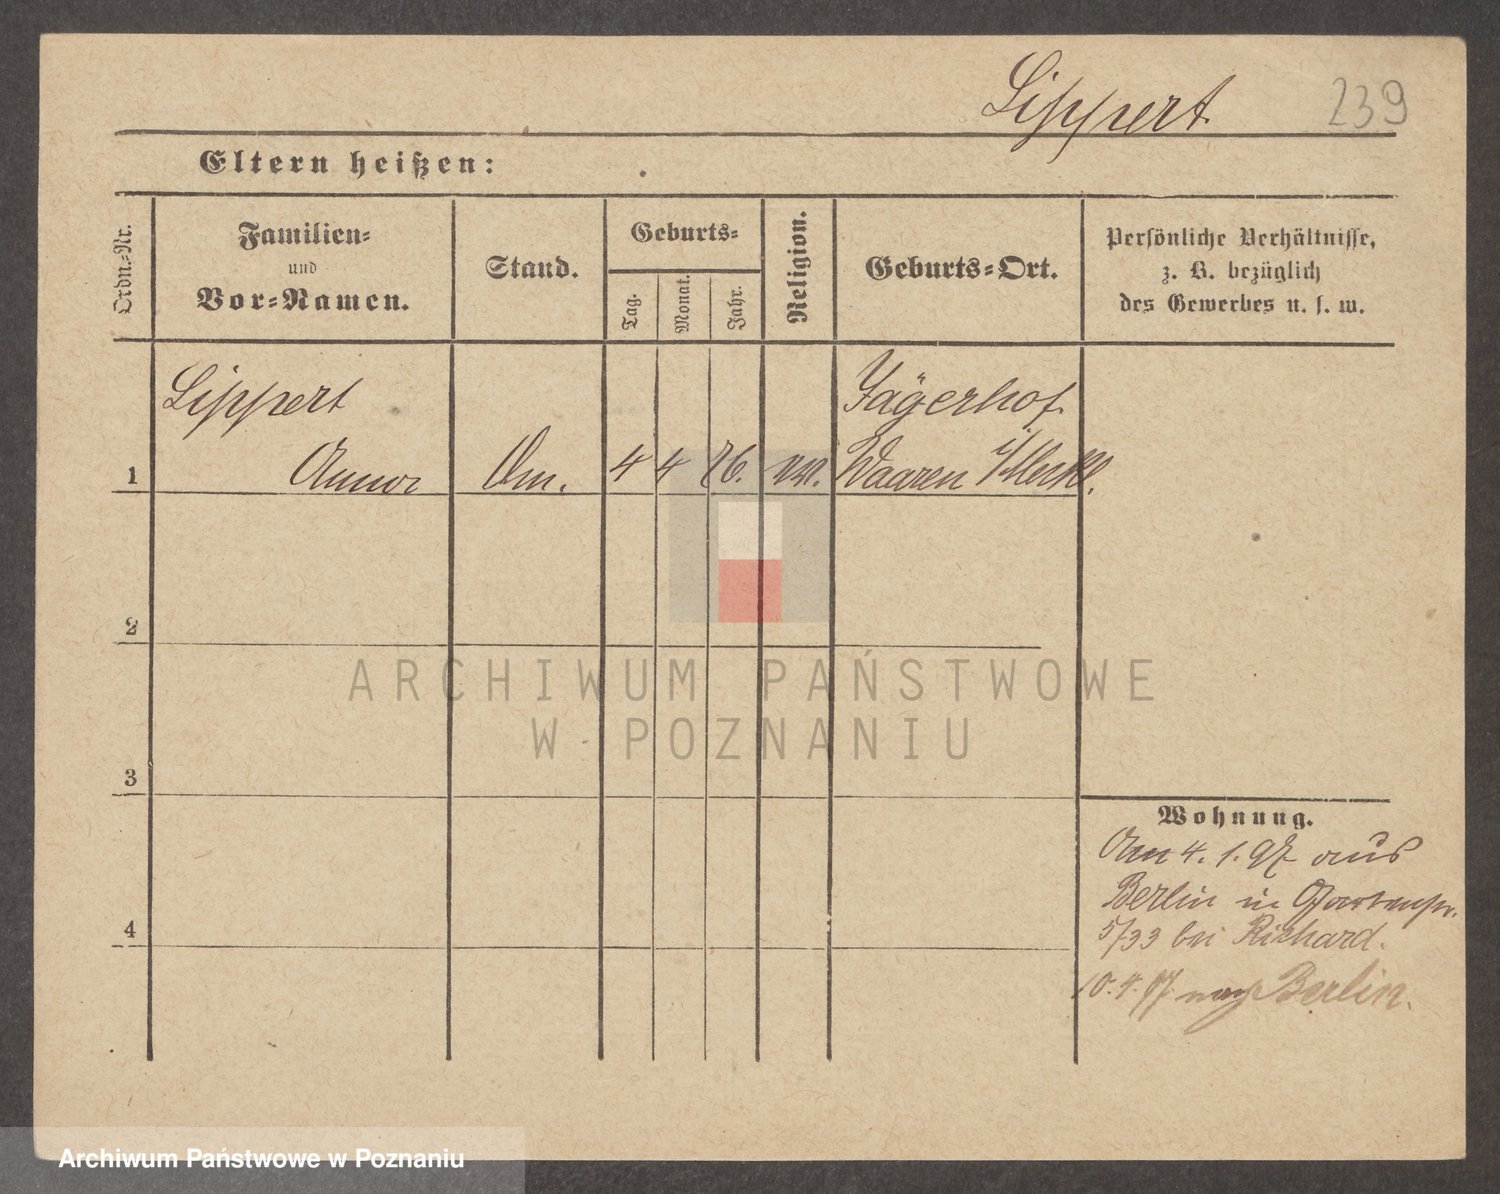 Lippert 239
Eltern heißen:
Ordn.-Nr.
Familien-
und
Vor-Namen.
Stand.
Geburts-
Tag.
Monat.
Jahr.
Religion.
Geburts-Ort.
Persönliche Verhältnisse,
z. B. bezüglich
des Gewerbes u. s. w.
Lippert
Jägerhof
1 Anna 4 4 76. Waaren i/
2
3
4
Wohnung.
Am 4. 1. 97 aus
Berlin in Gartenstr.
5/33 bei Richard.
10.4.97 nach Berlin.
ARCHIWUM PAŃSTWOWE
W POZNANIU
Archiwum Państwowe w Poznaniu